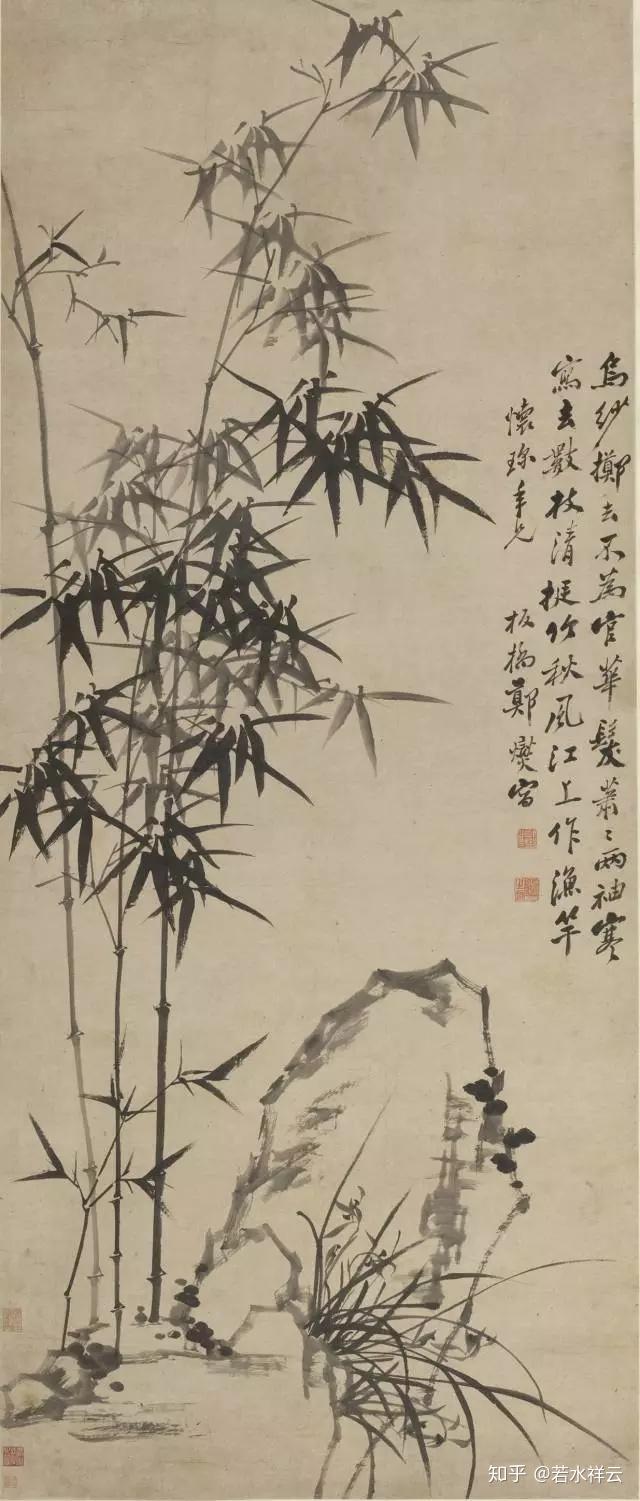 烏紗擲去不為官華髮蕭〻兩袖寒
寫去數枝清挺竹秋風江上作漁竿
懷珎年兄 板橋鄭燮寫
知乎 @若水祥云